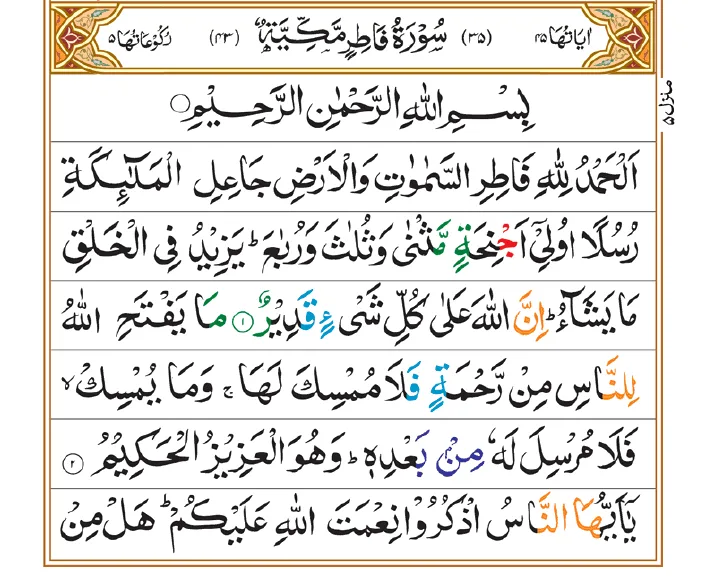 اٰیَاتُهَا ٤٥ (٣٥) سُوْرَةُ فَاطِرٍ مَّكِّیَّةٌ (٤٣) رُكُوْعَاتُهَا ٥
منزل ٥
بِسْمِ اللهِ الرَّحْمٰنِ الرَّحِیْمِ
اَلْحَمْدُ لِلّٰهِ فَاطِرِ السَّمٰوٰتِ وَالْاَرْضِ جَاعِلِ الْمَلٰٓئِكَةِ
رُسُلًا اُولِیْۤ اَجْنِحَةٍ مَّثْنٰی وَثُلٰثَ وَرُبٰعَ ؕ یَزِیْدُ فِی الْخَلْقِ
مَا یَشَآءُ ؕ اِنَّ اللهَ عَلٰی كُلِّ شَیْءٍ قَدِیْرٌ ﴿١﴾ مَا یَفْتَحِ اللهُ
لِلنَّاسِ مِنْ رَّحْمَةٍ فَلَا مُمْسِكَ لَهَا ۚ وَمَا یُمْسِكْ ۙ
فَلَا مُرْسِلَ لَهٗ مِنْۢ بَعْدِهٖ ؕ وَهُوَ الْعَزِیْزُ الْحَكِیْمُ ﴿٢﴾
یٰۤاَیُّهَا النَّاسُ اذْكُرُوْا نِعْمَتَ اللهِ عَلَیْكُمْ ؕ هَلْ مِنْ